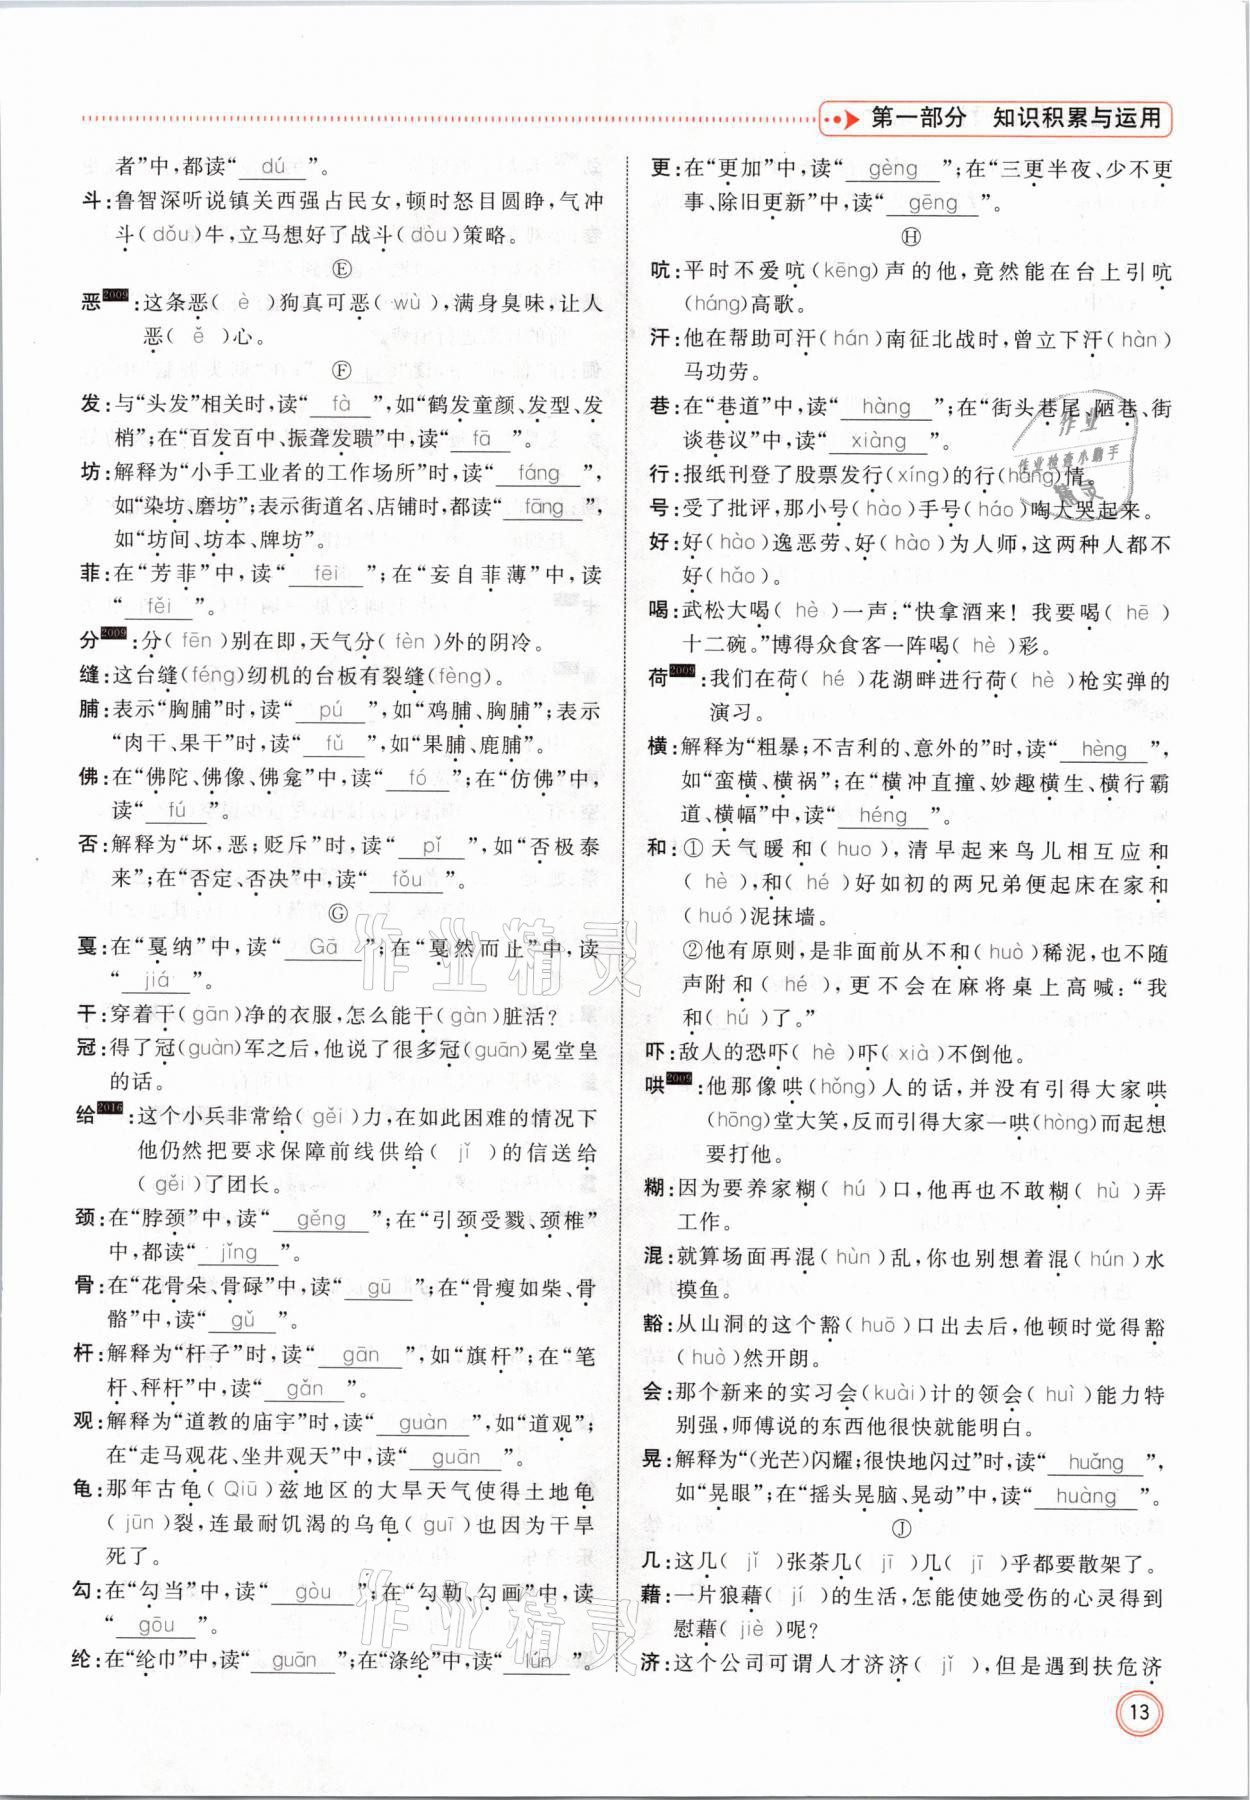 第一部分 知识积累与运用
者”中,都读“ dú ”。
斗:鲁智深听说镇关西强占民女,顿时怒目圆睁,气冲
斗(dǒu)牛,立马想好了战斗(dòu)策略。
Ⓔ
恶2009:这条恶( è )狗真可恶( wù ),满身臭味,让人
恶( ě )心。
Ⓕ
发:与“头发”相关时,读“ fà ”,如“鹤发童颜、发型、发
梢”;在“百发百中、振聋发聩”中,读“ fā ”。
坊:解释为“小手工业者的工作场所”时,读“ fáng ”,
如“染坊、磨坊”;表示街道名、店铺时,都读“ fāng ”,
如“坊间、坊本、牌坊”。
菲:在“芳菲”中,读“ fēi ”;在“妄自菲薄”中,读
“ fěi ”。
分2009:分( fēn )别在即,天气分( fèn )外的阴冷。
缝:这台缝(féng)纫机的台板有裂缝(fèng)。
脯:表示“胸脯”时,读“ pú ”,如“鸡脯、胸脯”;表示
“肉干、果干”时,读“ fǔ ”,如“果脯、鹿脯”。
佛:在“佛陀、佛像、佛龛”中,读“ fó ”;在“仿佛”中,
读“ fú ”。
否:解释为“坏,恶;贬斥”时,读“ pǐ ”,如“否极泰
来”;在“否定、否决”中,读“ fǒu ”。
Ⓖ
戛:在“戛纳”中,读“ Gā ”;在“戛然而止”中,读
“ jiá ”。
干:穿着干(gān)净的衣服,怎么能干(gàn)脏活?
冠:得了冠(guàn)军之后,他说了很多冠(guān)冕堂皇
的话。
给2016:这个小兵非常给(gěi)力,在如此困难的情况下
他仍然把要求保障前线供给( jǐ )的信送给
(gěi)了团长。
颈:在“脖颈”中,读“ gěng ”;在“引颈受戮、颈椎”
中,都读“ jǐng ”。
骨:在“花骨朵、骨碌”中,读“ gū ”;在“骨瘦如柴、骨
骼”中,读“ gǔ ”。
杆:解释为“杆子”时,读“ gān ”,如“旗杆”;在“笔
杆、秤杆”中,读“ gǎn ”。
观:解释为“道教的庙宇”时,读“ guàn ”,如“道观”;
在“走马观花、坐井观天”中,读“ guān ”。
龟:那年古龟(Qiū)兹地区的大旱天气使得土地龟
(jūn)裂,连最耐饥渴的乌龟(guī)也因为干旱
死了。
勾:在“勾当”中,读“ gòu ”;在“勾勒、勾画”中,读
“ gōu ”。
纶:在“纶巾”中,读“ guān ”;在“涤纶”中,读“ lún ”。
更:在“更加”中,读“ gèng ”;在“三更半夜、少不更
事、除旧更新”中,读“ gēng ”。
Ⓗ
吭:平时不爱吭(kēng)声的他,竟然能在台上引吭
(háng)高歌。
汗:他在帮助可汗(hán)南征北战时,曾立下汗(hàn)
马功劳。
巷:在“巷道”中,读“ hàng ”;在“街头巷尾、陋巷、街
谈巷议”中,读“ xiàng ”。
行:报纸刊登了股票发行(xíng)的行(háng)情。
号:受了批评,那小号(hào)手号(háo)啕大哭起来。
好:好(hào)逸恶劳、好(hào)为人师,这两种人都不
好(hǎo)。
喝:武松大喝( hè )一声:“快拿酒来!我要喝( hē )
十二碗。”博得众食客一阵喝( hè )彩。
荷2009:我们在荷( hé )花湖畔进行荷( hè )枪实弹的
演习。
横:解释为“粗暴;不吉利的、意外的”时,读“ hèng ”,
如“蛮横、横祸”;在“横冲直撞、妙趣横生、横行霸
道、横幅”中,读“ héng ”。
和:①天气暖和(huo),清早起来鸟儿相互应和
(hè),和(hé)好如初的两兄弟便起床在家和
(huó)泥抹墙。
②他有原则,是非面前从不和(huò)稀泥,也不随
声附和( hè ),更不会在麻将桌上高喊:“我
和( hú )了。”
吓:敌人的恐吓( hè )吓(xià)不倒他。
哄2009:他那像哄(hǒng)人的话,并没有引得大家哄
(hōng)堂大笑,反而引得大家一哄(hòng)而起想
要打他。
糊:因为要养家糊( hú )口,他再也不敢糊( hù )弄
工作。
混:就算场面再混(hùn)乱,你也别想着混(hún)水
摸鱼。
豁:从山洞的这个豁(huō)口出去后,他顿时觉得豁
(huò)然开朗。
会:那个新来的实习会(kuài)计的领会(huì)能力特
别强,师傅说的东西他很快就能明白。
晃:解释为“(光芒)闪耀;很快地闪过”时,读“ huǎng ”,
如“晃眼”;在“摇头晃脑、晃动”中,读“ huàng ”。
Ⓙ
几:这几( jǐ )张茶几( jī )几( jī )乎都要散架了。
藉:一片狼藉( jí )的生活,怎能使她受伤的心灵得到
慰藉( jiè )呢?
济:这个公司可谓人才济济( jǐ ),但是遇到扶危济
13
作业
作业检查小助手
精灵
作业精灵
作业精灵